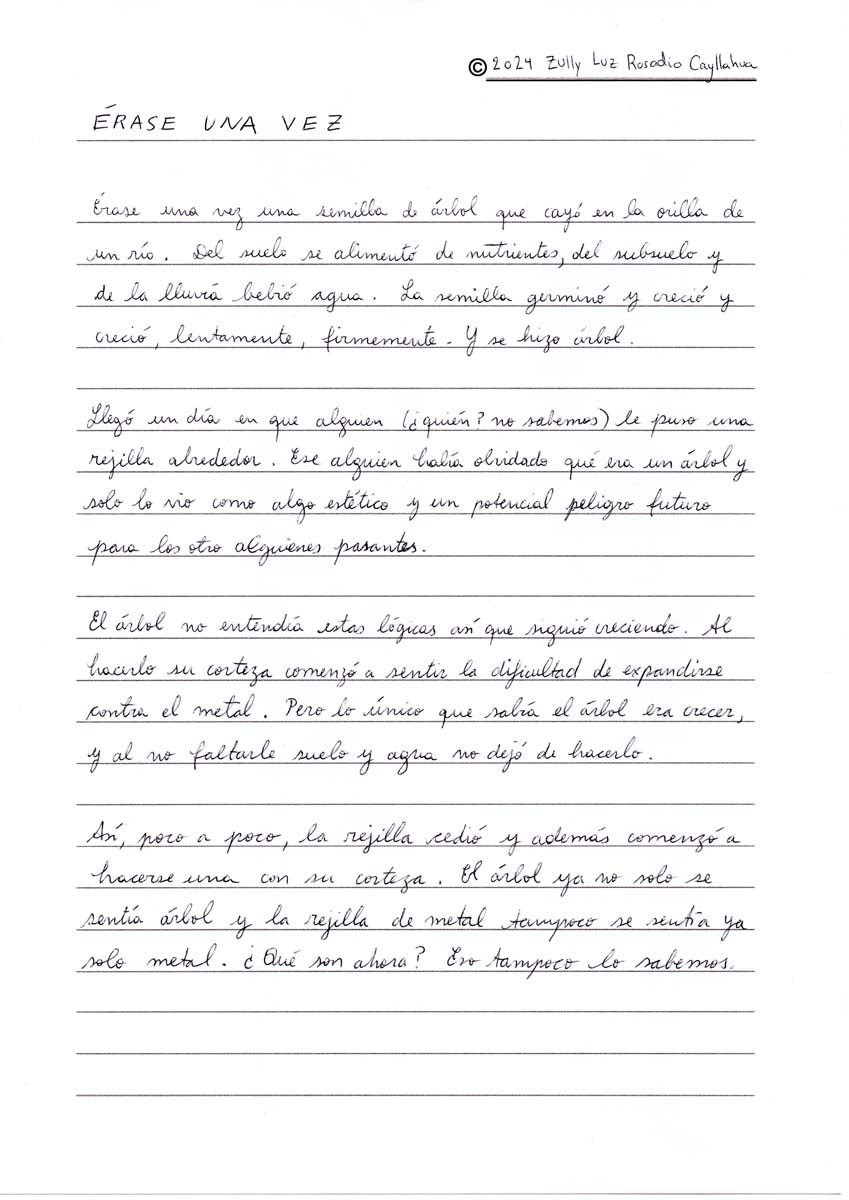 © 2024 Zully Luz Rosadio Cayllahua
ÉRASE UNA VEZ
Érase una vez una semilla de árbol que cayó en la orilla de
un río. Del suelo se alimentó de nutrientes, del subsuelo y
de la lluvia bebió agua. La semilla germinó y creció y
creció, lentamente, firmemente. Y se hizo árbol.
Llegó un día en que alguien (¿quién? no sabemos) le puso una
rejilla alrededor. Ese alguien había olvidado qué era un árbol y
solo lo vio como algo estético y un potencial peligro futuro
para los otro alguienes pasantes.
El árbol no entendía estas lógicas así que siguió creciendo. Al
hacerlo su corteza comenzó a sentir la dificultad de expandirse
contra el metal. Pero lo único que sabía el árbol era crecer,
y al no faltarle suelo y agua no dejó de hacerlo.
Así, poco a poco, la rejilla cedió y además comenzó a
hacerse una con su corteza. El árbol ya no solo se
sentía árbol y la rejilla de metal tampoco se sentía ya
solo metal. ¿Qué son ahora? Eso tampoco lo sabemos.